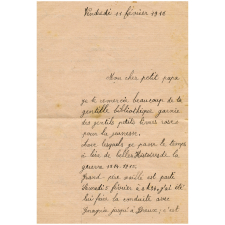 Vendredi 11 février 1916
Mon cher petit papa
je te remercie beaucoup de ta
gentille bibliothèque garnie
des gentils petits livres roses
pour la jeunesse.
Avec lesquels je passe le temps
à lire de belles Histoires de la
guerre 1914-1915.
Grand-père est parti
Samedi 5 février à j'ai été
lui faire la conduite avec
jusqu'à Dreux; c'est